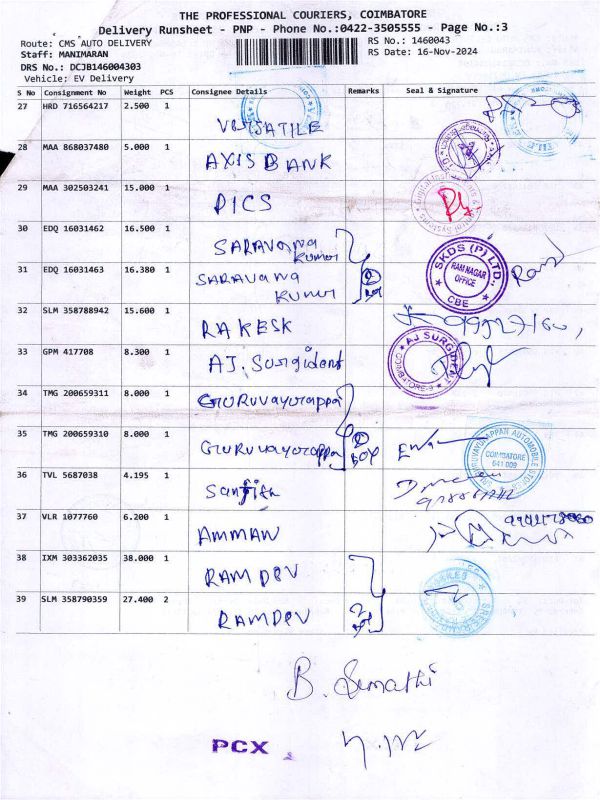 THE PROFESSIONAL COURIERS, COIMBATORE
Delivery Runsheet - PNP - Phone No.:0422-3505555 - Page No.:3
Route: CMS AUTO DELIVERY
RS No.: 1460043
Staff: MANIMARAN
RS Date: 16-Nov-2024
DRS No.: DCJB146004303
Vehicle: EV Delivery
S No Consignment No Weight PCS Consignee Details Remarks Seal & Signature
27 HRD 716564217 2.500 1 VERSATILE
28 MAA 868037480 5.000 1 AXIS BANK
29 MAA 302503241 15.000 1 PICS
30 EDQ 16031462 16.500 1 SARAVANA Kumar
31 EDQ 16031463 16.380 1 SARAVANA Kumar
SKDS (P) LTD. RAM NAGAR OFFICE CBE
32 SLM 358788942 15.600 1 RAKESK
33 GPM 417708 8.300 1 AJ. Surgident
AJ SURGIDENT
34 TMG 200659311 8.000 1 GURUVAYURAPPA
35 TMG 200659310 8.000 1 GURUVAYURAPPA 2 BOX
GURUVAYURAPPAN AUTOMOBILE STORES COIMBATORE 641 009
36 TVL 5687038 4.195 1
37 VLR 1077760 6.200 1 AMMAN
38 IXM 303362035 38.000 1 RAMDEV
39 SLM 358790359 27.400 2 RAMDEV
B. Sumathi
PCX